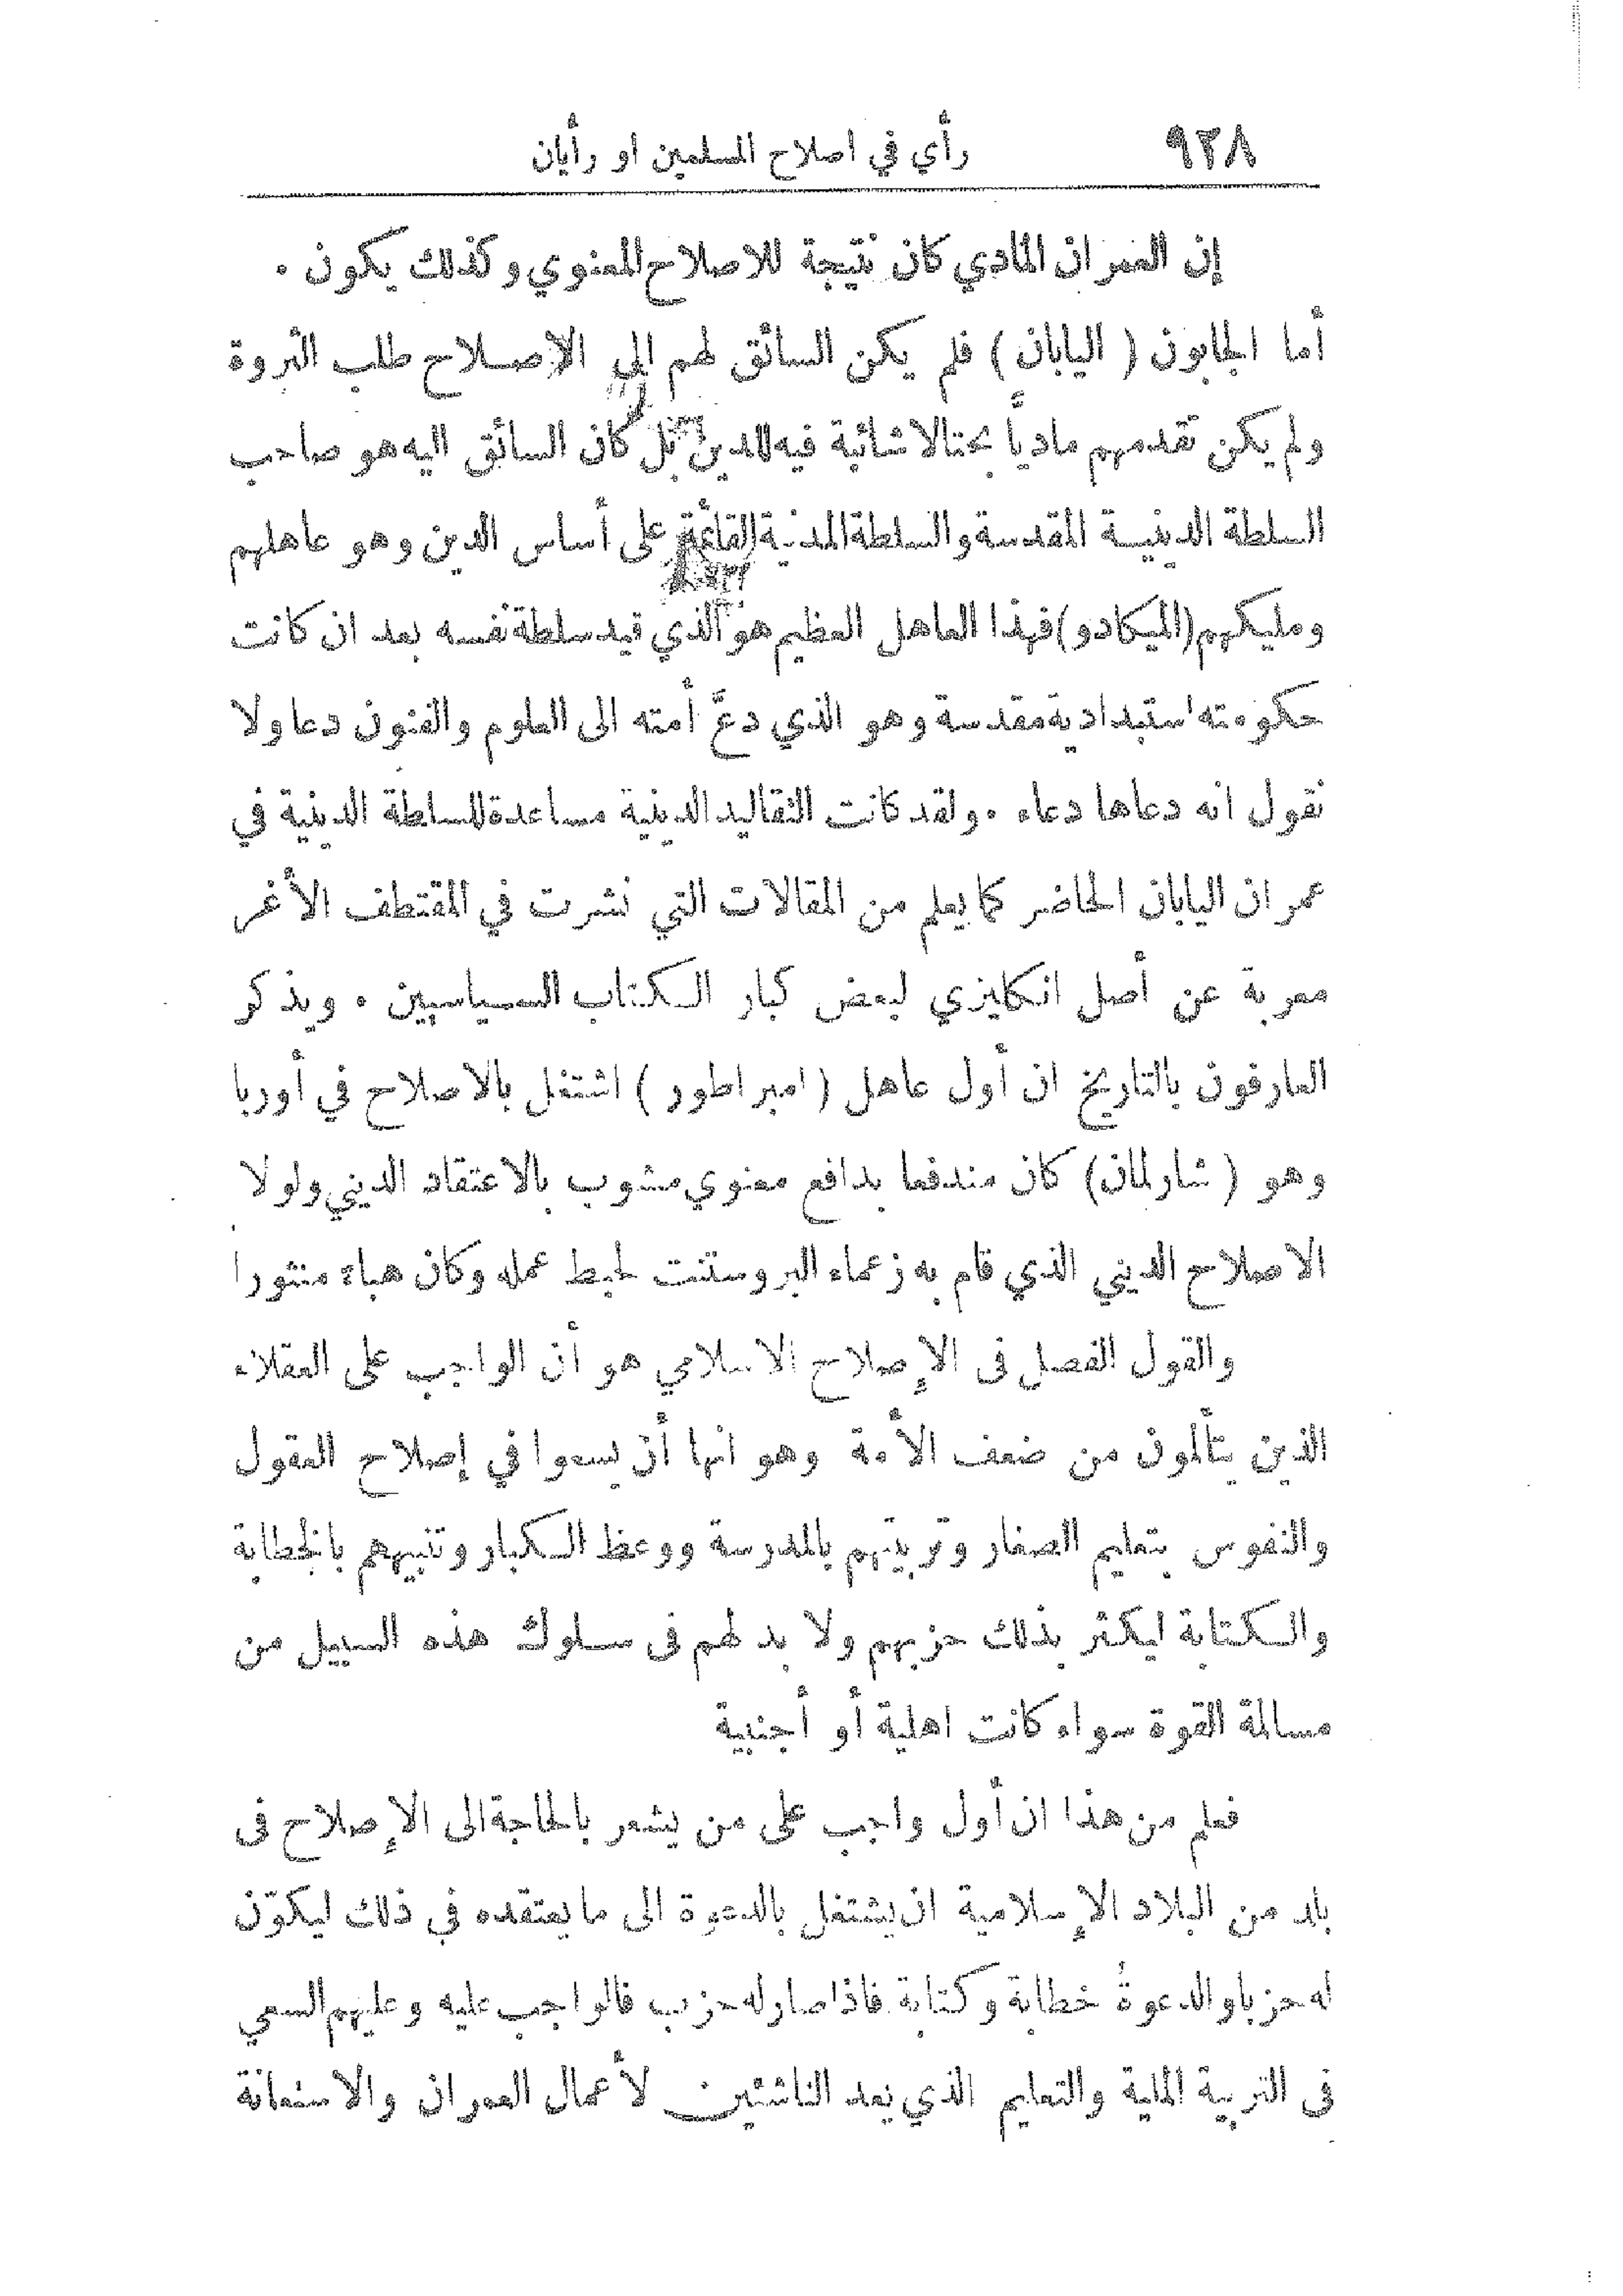 ٩٢٨
رأي في اصلاح المسلمين او رأيان
إن العمران المادي كان نتيجة للاصلاح المعنوي وكذلك يكون .
أما الجابون ( اليابان ) فلم يكن السائق لهم إلى الإصلاح طلب الثروة
ولم يكن تقدمهم مادياً بحتا لا شائبة فيه للدين بل كان السائق اليه هو صاحب
السلطة الدينية المقدسة والسلطة المدنية القائمة على أساس الدين وهو عاهلهم
ومليكهم (الميكادو) فهذا العاهل العظيم هو الذي قيد سلطة نفسه بعد ان كانت
حكومته استبدادية مقدسة وهو الذي دعَّ أمته الى العلوم والفنون دعا ولا
نقول انه دعاها دعاء . ولقد كانت التقاليد الدينية مساعدة للسلطة الدينية في
عمران اليابان الحاضر كما يعلم من المقالات التي نشرت في المقتطف الأغر
معربة عن أصل انكليزي لبعض كبار الكتاب السياسيين . ويذكر
العارفون بالتاريخ ان أول عاهل ( امبراطور ) اشتغل بالاصلاح في أوربا
وهو ( شارلمان) كان مندفعا بدافع معنوي مشوب بالاعتقاد الديني ولولا
الاصلاح الديني الذي قام به زعماء البروستنت لحبط عمله وكان هباء منثورا
والقول الفصل في الإصلاح الاسلامي هو أن الواجب على العقلاء
الذين يتألمون من ضعف الأمة وهوانها أن يسعوا في إصلاح العقول
والنفوس بتعليم الصغار وتربيتهم بالمدرسة ووعظ الكبار وتنبيههم بالخطابة
والكتابة ليكثر بذلك حزبهم ولا بد لهم في سلوك هذه السبيل من
مسالمة القوة سواء كانت اهلية أو أجنبية
فعلم من هذا ان أول واجب على من يشعر بالحاجة الى الإصلاح في
بلد من البلاد الإسلامية ان يشتغل بالدعوة الى ما يعتقده في ذلك ليكوّن
له حزبا والدعوةُ خطابة وكتابة فاذا صار له حزب فالواجب عليه وعليهم السعي
في التربية الملية والتعليم الذي يعد الناشئين لأعمال العمران والاستعانة